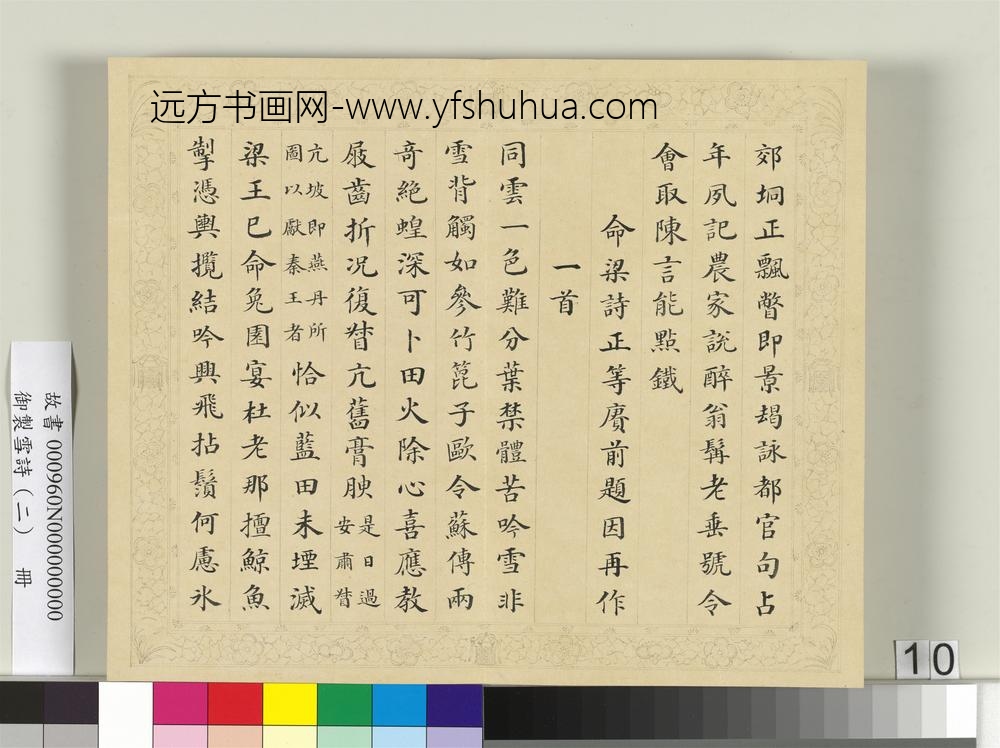 远方书画网-www.yfshuhua.com
郊坰正飄瞥即景朅詠都官句占
年夙記農家説醉翁髯老垂號令
會取陳言能點鐵
命梁詩正等賡前題因再作
一首
同雲一色難分葉禁體苦吟雪非
雪背觸如參竹篦子歐令蘇傳兩
奇絶蝗深可卜田火除心喜應教
屐齒折况復督亢舊膏腴是日過
安肅督
亢坡即燕丹所
圖以獻秦王者恰似藍田未堙滅
梁王已命兔園宴杜老那擅鯨魚
掣憑輿攬結吟興飛拈鬚何慮氷
故書 000960N000000000
御製雪詩(二) 冊
10